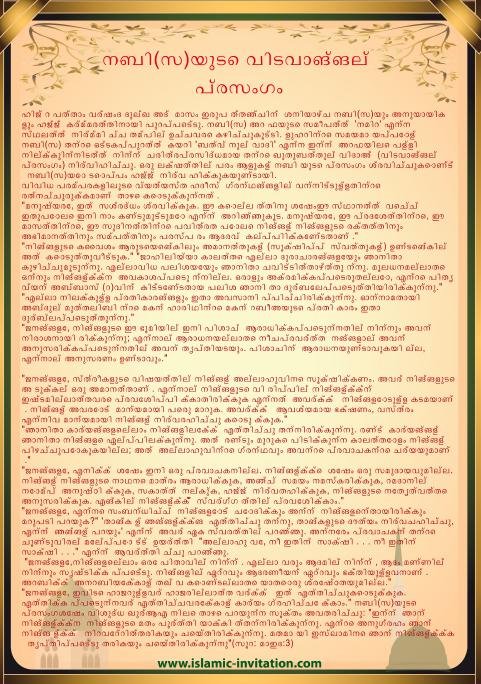 നബി(സ)യുടെ വിടവാങ്ങല്
പ്രസംഗം
ഹിജ്റ പത്താം വര്ഷം ദുല്ഖഅദ് മാസം ഇരുപത്തഞ്ചിന് ശനിയാഴ്ച നബി(സ)യും അനുയായിക
ളും ഹജ്ജ് കര്മ്മത്തിനായി പുറപ്പെട്ടു. നബി(സ) അറഫയുടെ സമീപത്ത് 'നമിറ' എന്ന
സ്ഥലത്ത് നിര്മ്മിച്ച തമ്പില് ഉച്ചവരെ കഴിച്ചുകൂട്ടി. ളുഹറിന്റെ സമയമായപ്പോള്
നബി(സ) തന്റെ ഒട്ടകപ്പുറത്ത് കയറി 'ബത്വ്നുല് വാദി' എന്ന ഇന്ന് അറഫയിലെ പള്ളി
നില്ക്കുന്നിടത്ത് നിന്ന് ചരിത്രപ്രസിദ്ധമായ തന്റെ ഖുതുബത്തുല് വിദാഅ് (വിടവാങ്ങല്
പ്രസംഗം) നിര്വ്വഹിച്ചു. ഒരു ലക്ഷത്തില് പരം ആളുകള് നബിയുടെ പ്രസംഗം ശ്രവിച്ചുകൊണ്ട്
നബി(സ)യോടൊപ്പം ഹജ്ജ് നിര്വഹിക്കുകയുണ്ടായി.
വിവിധ പരമ്പരകളിലൂടെ വ്യത്യസ്ത ഹദീസ് ഗ്രന്ഥങ്ങളില് വന്നിട്ടുള്ളതിന്റെ
രത്നച്ചുരുക്കമാണ് താഴെ കൊടുക്കുന്നത്.
"മനുഷ്യരേ, ഇത് സശ്രദ്ധം ശ്രവിക്കുക. ഈ കൊല്ലത്തിനു ശേഷം ഈ സ്ഥാനത്ത് വച്ചെ്
ഇതുപോലെ ഇനി നാം കണ്ടുമുട്ടുമോ എന്ന് അറിഞ്ഞുകൂട. മനുഷ്യരേ, ഈ പ്രദേശത്തിന്റെ, ഈ
മാസത്തിന്റെ, ഈ സുദിനത്തിന്റെ പവിത്രത പോലെ നിങ്ങള് നിങ്ങളുടെ രക്തത്തിനും
അഭിമാനത്തിനും സമ്പത്തിനും പരസ്പരം ആദരവ് കല്പ്പിക്കേണ്ടതാണ്."
"നിങ്ങളുടെ കൈവശം ആരുടെയെങ്കിലും അമാനത്തുകള് (സൂക്ഷിപ്പ് സ്വത്തുകള്) ഉണ്ടെങ്കില്
അത് കൊടുത്തുവീട്ടുക." "ജാഹിലിയ്യാ കാലത്തെ എല്ലാ ദുരാചാരങ്ങളേയും ഞാനിതാ
കുഴിച്ചുമൂടുന്നു. എല്ലാവിധ പലിശയേയും ഞാനിതാ ചവിട്ടിത്താഴ്ത്തുന്നു. മൂലധനമല്ലാതെ
ഒന്നും നിങ്ങള്ക്ക് അവകാശപ്പെടുന്നില്ല. ഒരാളും അക്രമിക്കപ്പെടരുതല്ലോ, എന്റെ പിതൃ
വ്യന് അബ്ബാസ് (റ)വിന് കിട്ടേണ്ടതായ പലിശ ഞാനിതാ ദുര്ബലപ്പെടുത്തിയിരിക്കുന്നു."
"എല്ലാ നിലക്കുള്ള പ്രതികാരങ്ങളും ഇതാ അവസാനിപ്പിച്ചിരിക്കുന്നു. ഒന്നാമതായി
അബ്ദുല് മുത്തലിബിന്റെ മകന് ഹാരിഥിന്റെ മകന് റബീഅയുടെ പ്രതികാരം ഇതാ
ദുര്ബലപ്പെടുത്തുന്നു."
"ജനങ്ങളേ, നിങ്ങളുടെ ഈ ഭൂമിയില് ഇനി പിശാച് ആരാധിക്കപ്പെടുന്നതില് നിന്നും അവന്
നിരാശനായിരിക്കുന്നു; എന്നാല് ആരാധനയല്ലാതെ നീചപ്രവര്ത്തനങ്ങളാല് അവന്
അനുസരിക്കപ്പെടുന്നതില് അവന് തൃപ്തിയടയും. പിശാചിന് ആരാധനയുണ്ടാവുകയില്ല,
എന്നാല് അനുസരണം ഉണ്ടാവും."
"ജനങ്ങളേ, സ്ത്രീകളുടെ വിഷയത്തില് നിങ്ങള് അല്ലാഹുവിനെ സൂക്ഷിക്കണം. അവര് നിങ്ങളുടെ
അടുക്കല് ഒരു അമാനത്താണ്. എന്നാല് നിങ്ങളുടെ വിരിപ്പില് നിങ്ങള്ക്ക്
ഇഷ്ടമില്ലാത്തവരെ പ്രവേശിപ്പിക്കാതിരിക്കുക എന്നത് അവര്ക്ക് നിങ്ങളോടുള്ള കടമയാണ്
. നിങ്ങള് അവരോട് മാന്യമായി പെരുമാറുക. അവര്ക്ക് ആവശ്യമായ ഭക്ഷണം, വസ്ത്രം
എന്നിവ മാന്യമായി നിങ്ങള് നിര്വഹിച്ചുകൊടുക്കുക."
"ഞാനിതാ കാര്യങ്ങളെല്ലാം നിങ്ങളിലേക്ക് എത്തിച്ചു തന്നിരിക്കുന്നു. രണ്ട് കാര്യങ്ങള്
ഞാനിതാ നിങ്ങളെ ഏല്പ്പിലക്കുന്നു. അത് രണ്ടും മുറുകെ പിടിക്കുന്ന കാലത്തോളം നിങ്ങള്
പിഴച്ചുപോകുകയില്ല; അത് അല്ലാഹുവിന്റെ ഗ്രന്ഥവും അവന്റെ പ്രവാചകന്റെ ചര്യയുമാണ്
."
"ജനങ്ങളേ, എനിക്ക് ശേഷം ഇനി ഒരു പ്രവാചകനില്ല. നിങ്ങള്ക്ക് ശേഷം ഒരു സമുദായവുമില്ല.
നിങ്ങള് നിങ്ങളുടെ നാഥനെ മാത്രം ആരാധിക്കുക, അഞ്ച് സമയം നമസ്കരിക്കുക, റമദാനില്
നോമ്പ് അനുഷ്ഠിക്കുക, സകാത്ത് നല്കുക, ഹജ്ജ് നിര്വഹിക്കുക, നിങ്ങളുടെ നേതൃത്വത്തെ
അനുസരിക്കുക. എങ്കില് നിങ്ങള്ക്ക് സ്വര്ഗത്തില് പ്രവേശിക്കാം."
"ജനങ്ങളേ, എന്നെ സംബന്ധിച്ച് നിങ്ങളോട് ചോദിക്കും അന്ന് നിങ്ങളെന്തായിരിക്കും
മറുപടി പറയുക?" "താങ്കള് ഞങ്ങള്ക്ക് എത്തിച്ചു തന്നു, താങ്കളുടെ ദൗത്യം നിര്വഹിച്ചു,
എന്ന് ഞങ്ങള് പറയും" എന്ന് അവര് ഏകസ്വരത്തില് പറഞ്ഞു. അന്നേരം പ്രവാചകന് തന്റെ
ചൂണ്ടുവിരല് മേല്പ്പോട്ട് ഉയര്ത്തി "അല്ലാഹുവേ, നീ ഇതിന് സാക്ഷി . . . നീ ഇതിന്
സാക്ഷി . . ." എന്ന് ആവര്ത്തിച്ചു പറഞ്ഞു.
"ജനങ്ങളേ,നിങ്ങളെല്ലാം ഒരേ പിതാവില് നിന്ന്. എല്ലാവരും ആദമില് നിന്ന്, ആദം മണ്ണില്
നിന്നും സൃഷ്ടിക്കപ്പെട്ടു. നിങ്ങളില് ഏറ്റവും ആദരണീയന് ഏറ്റവും ഭക്തിയുള്ളവനാണ്.
അറബിക്ക് അനറബിയേക്കാള് തഖ്വ കൊണ്ടല്ലാതെ യാതൊരു ശ്രേഷ്ഠതയുമില്ല."
"ജനങ്ങളേ, ഇവിടെ ഹാജറുള്ളവര് ഹാജരില്ലാത്തവര്ക്ക് ഇത് എത്തിച്ചുകൊടുക്കുക.
എത്തിക്കപ്പെടുന്നവര് എത്തിച്ചവരേക്കാള് കാര്യം ഗ്രഹിച്ചേക്കാം." നബി(സ)യുടെ
പ്രസംഗശേഷം വിശുദ്ധ ഖുര്ആനിലെ താഴെ പറയുന്ന സൂക്തം അവതരിച്ചു: "ഇന്ന് ഞാന്
നിങ്ങള്ക്ക് നിങ്ങളുടെ മതം പൂര്ത്തിയാക്കിത്തന്നിരിക്കുന്നു. എന്റെ അനുഗ്രഹം ഞാന്
നിങ്ങള്ക്ക് നിറവേറ്റിത്തരികയും ചെയ്തിരിക്കുന്നു. മതമായി ഇസ്ലാമിനെ ഞാന് നിങ്ങള്ക്ക്
തൃപ്തിപ്പെട്ടു തരികയും ചെയ്തിരിക്കുന്നു"(സൂറ: മാഇദ:3)
www.islamic-invitation.com